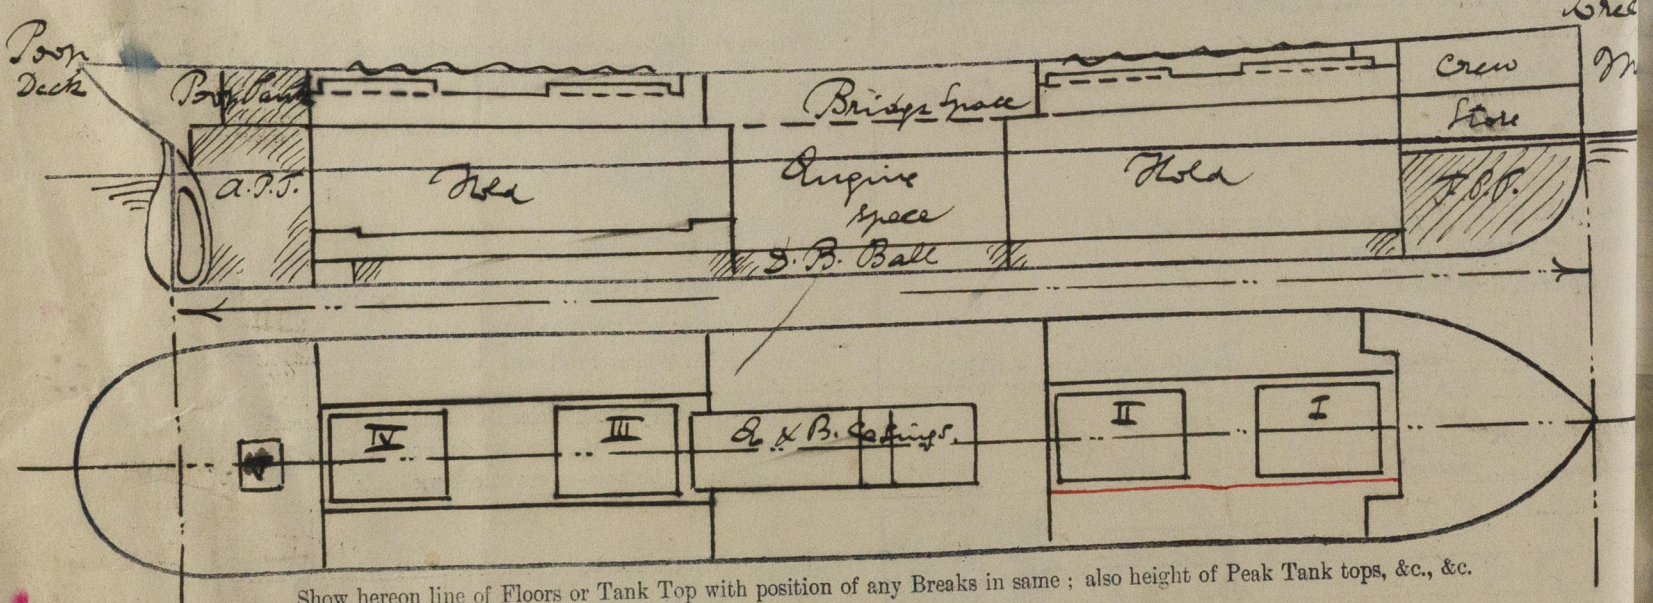 Poop
Deck
Crew
Bridge Space
Store
A.P.T.
Hold
Engine
space
Hold
D. B. Ball
IV
III
E & B. Casings.
II
I
Show hereon line of Floors or Tank Top with position of any Breaks in same; also height of Peak Tank tops, &c., &c.